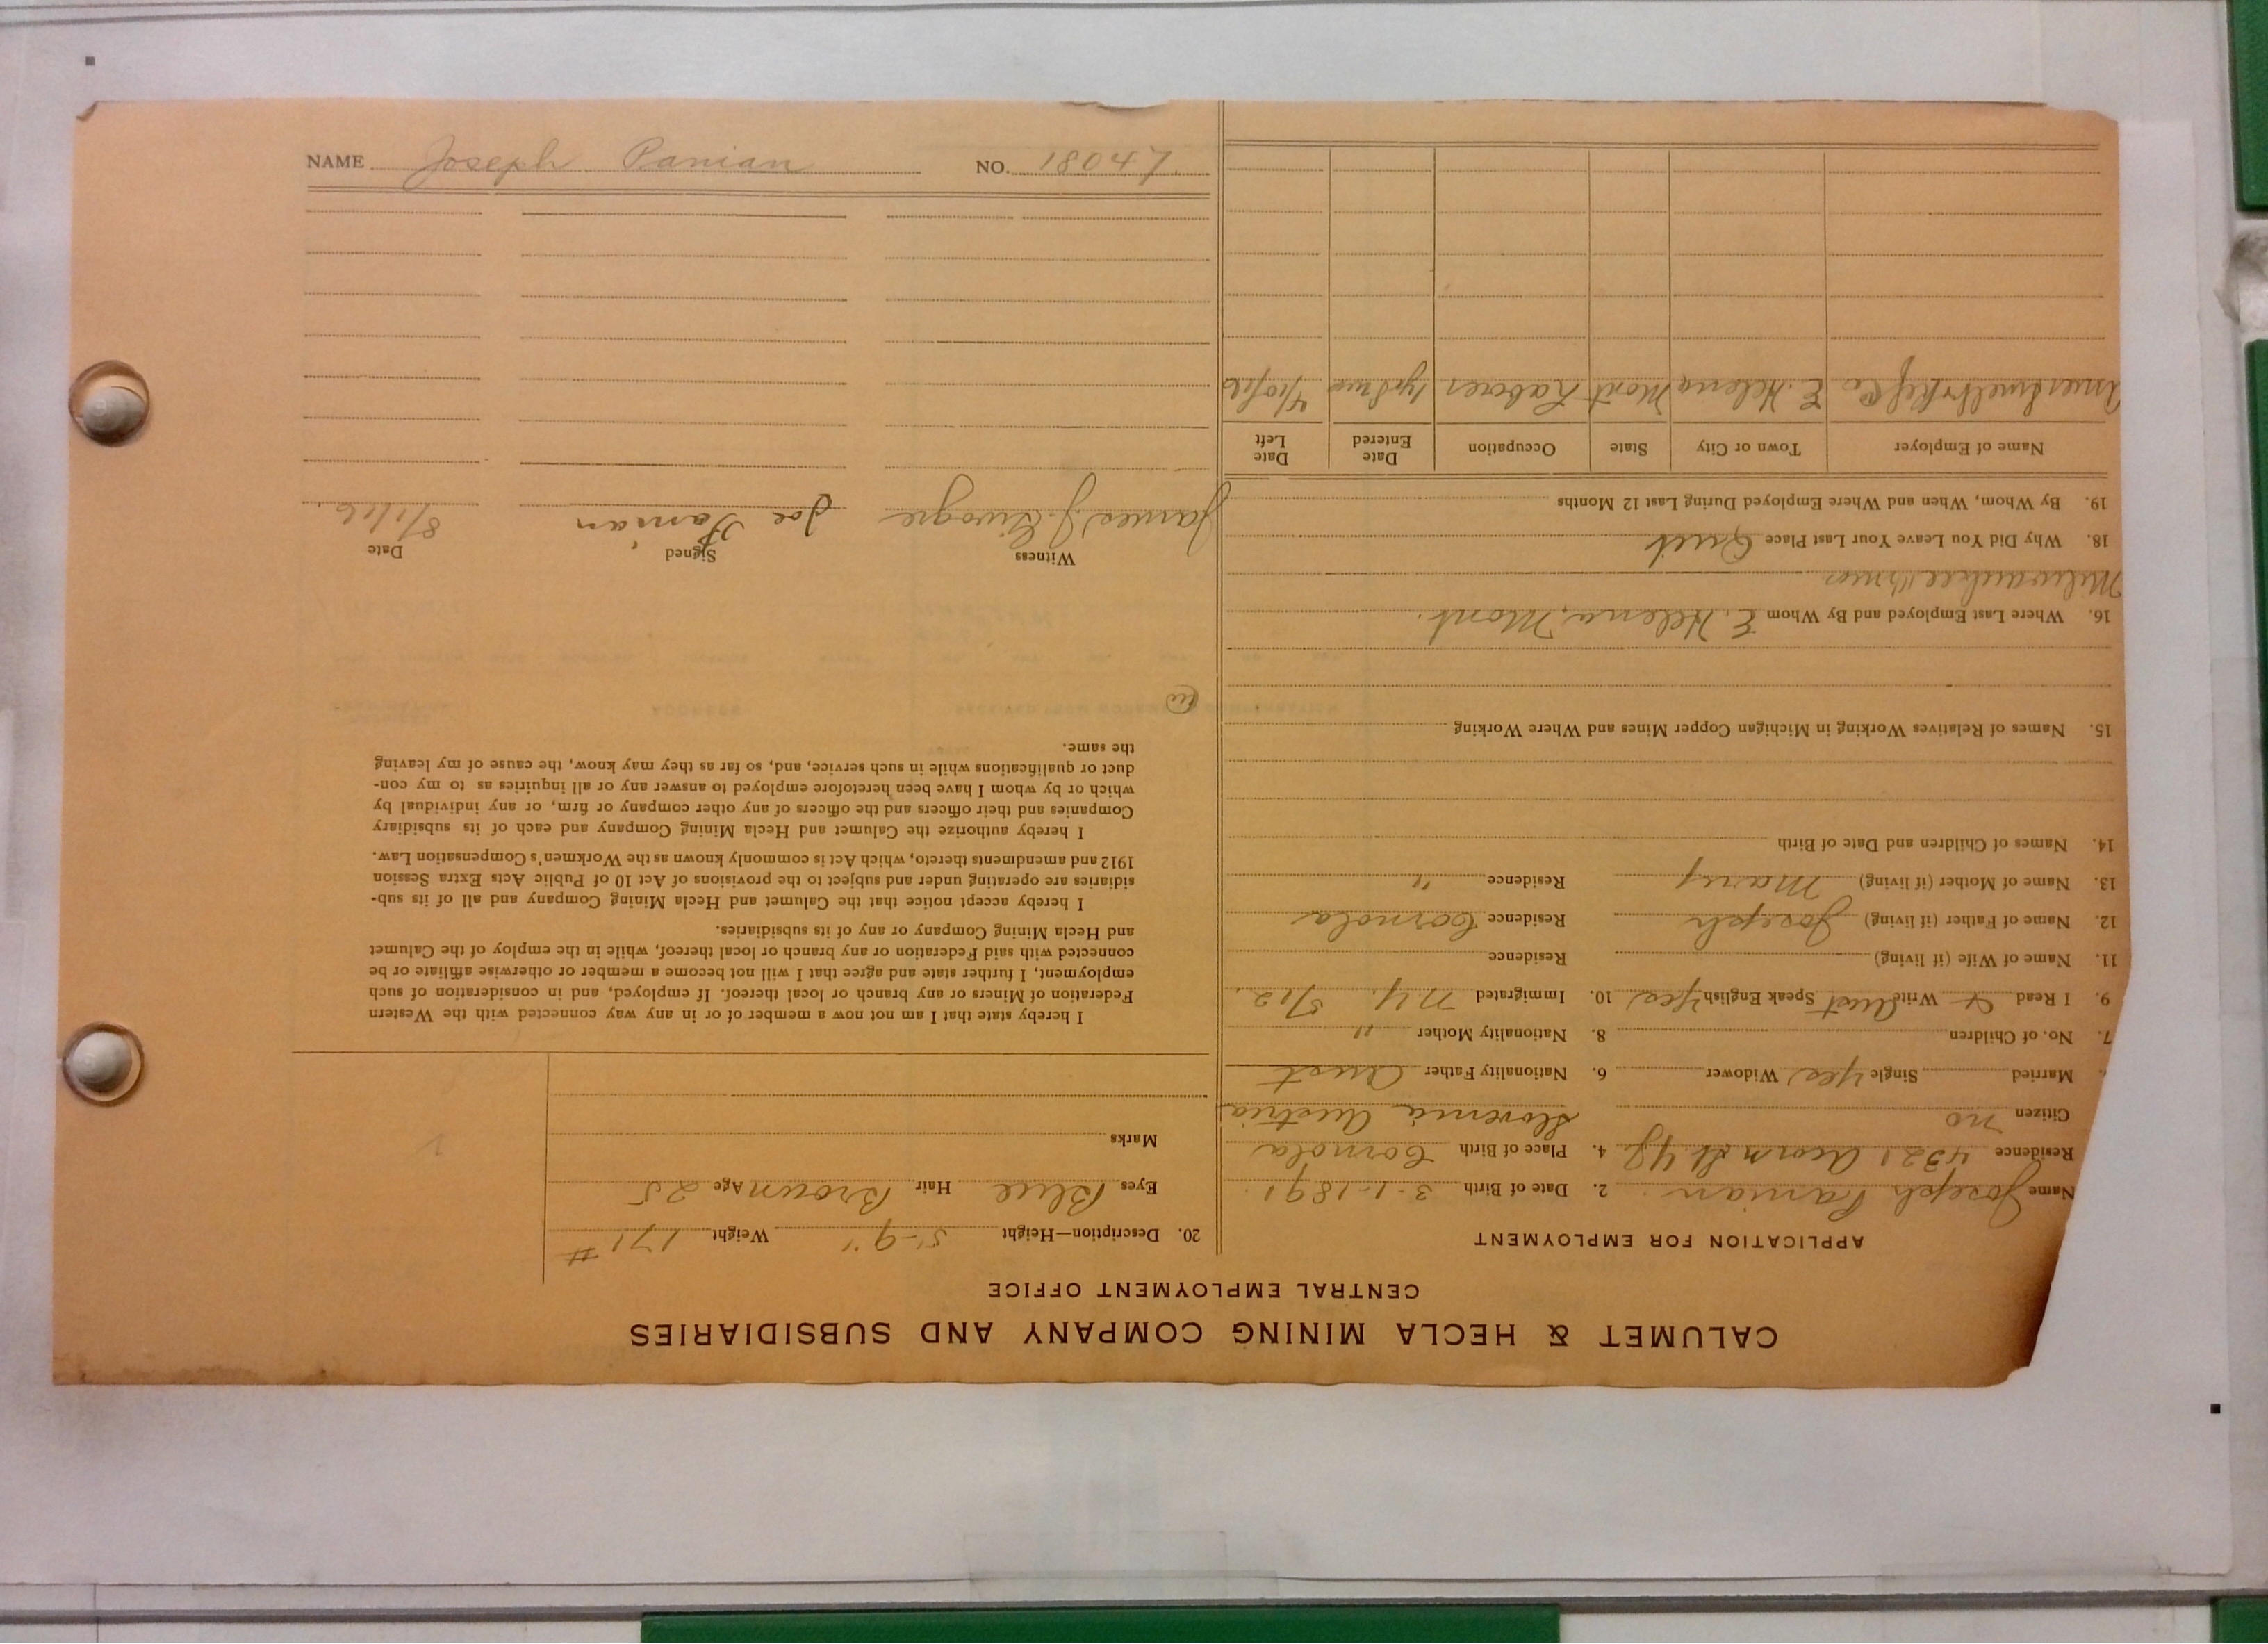 CALUMET & HECLA MINING COMPANY AND SUBSIDIARIES
CENTRAL EMPLOYMENT OFFICE
APPLICATION FOR EMPLOYMENT
Name Joseph Panian 2. Date of Birth 3-1-1891
Residence 4321 Acorn St Yg. 4. Place of Birth Cornola
Citizen no Slovenia Austria
Married Single Yes Widower 6. Nationality Father Aust
7. No. of Children 8. Nationality Mother "
9. I Read & Write Aust Speak English Yes 10. Immigrated N.Y. 5/12.
11. Name of Wife (if living) Residence
12. Name of Father (if living) Joseph Residence Cornola
13. Name of Mother (if living) Mary Residence "
14. Names of Children and Date of Birth
15. Names of Relatives Working in Michigan Copper Mines and Where Working
16. Where Last Employed and By Whom E. Helena, Mont.
Milwaukee
18. Why Did You Leave Your Last Place Quit
19. By Whom, When and Where Employed During Last 12 Months
Name of Employer Town or City State Occupation Date Entered Date Left
Amer Smelt & Ref Co E. Helena Mont Laborer 1yr 8mo 4/10/16
20. Description—Height 5'-9" Weight 171#
Eyes Blue Hair Brown Age 25
Marks
I hereby state that I am not now a member of or in any way connected with the Western
Federation of Miners or any branch or local thereof. If employed, and in consideration of such
employment, I further state and agree that I will not become a member or otherwise affiliate or be
connected with said Federation or any branch or local thereof, while in the employ of the Calumet
and Hecla Mining Company or any of its subsidiaries.
I hereby accept notice that the Calumet and Hecla Mining Company and all of its sub-
sidiaries are operating under and subject to the provisions of Act 10 of Public Acts Extra Session
1912 and amendments thereto, which Act is commonly known as the Workmen's Compensation Law.
I hereby authorize the Calumet and Hecla Mining Company and each of its subsidiary
Companies and their officers and the officers of any other company or firm, or any individual by
which or by whom I have been heretofore employed to answer any or all inquiries as to my con-
duct or qualifications while in such service, and, so far as they may know, the cause of my leaving
the same.
Witness Signed Date
James J. Joe Panian 8/1/16.
NAME Joseph Panian NO. 18047